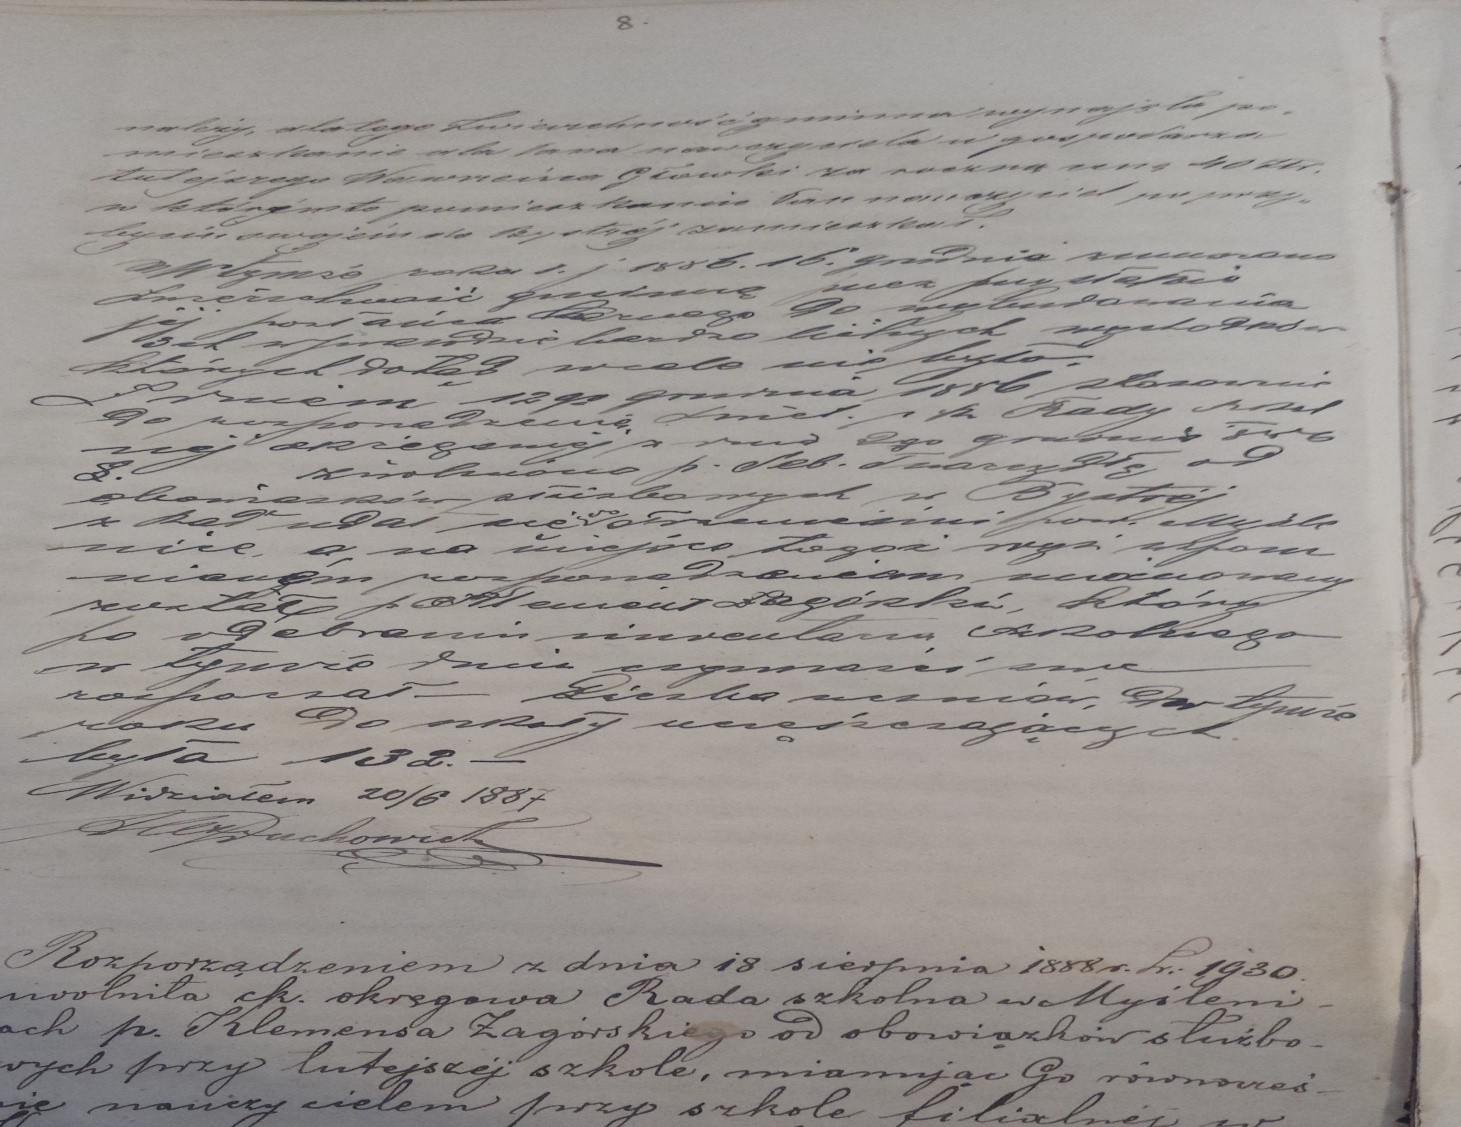 8.
należy, dlatego Zwierzchność gminna wynajęła po-
mieszkanie dla pana nauczyciela u gospodarza
tutejszego Wawrzeńca Główki za roczną cenę 40 złr.
w którymto pomieszkaniu Pan nauczyciel po przy-
byciu swojem do Bystrej zamieszkał.
W tymże roku t. j. 1886. 16. grudnia zmuszono
Zwierzchność gminną przez przysłanie
jej posłańca karnego do wybudowania
wprawdzie bardzo lichych wychodków
których dotąd wcale nie było.
Z dniem grudnia 1886 stosownie
do rozporządzenia Rady szkol
nej okręgowej z dnia 2go grudnia
zwolniono p. Seb. od
obowiązków służbowych w Bystrej
z kąd udał się do Trzemeśni pow. Myśle
nice, a na miejsce tegoż wyż wspom
nianem rozporządzeniem mianowany
został p. Klemens Zagórski, który
po odebraniu inwentarza szkolnego
w tymże dniu czynności swe
rozpoczął — Liczba uczniów, w tymże
roku do szkoły uczęszczających
była 132. —
Widziałem 20/6 1887
Rozporządzeniem z dnia 18 sierpnia 1888 r. L.: 1930.
uwolniła ck. okręgowa Rada szkolna w Myśleni-
ach p. Klemensa Zagórskiego od obowiązków służbo-
wych przy tutejszéj szkole, mianując Go równocześ-
nie nauczycielem przy szkole filialnéj w